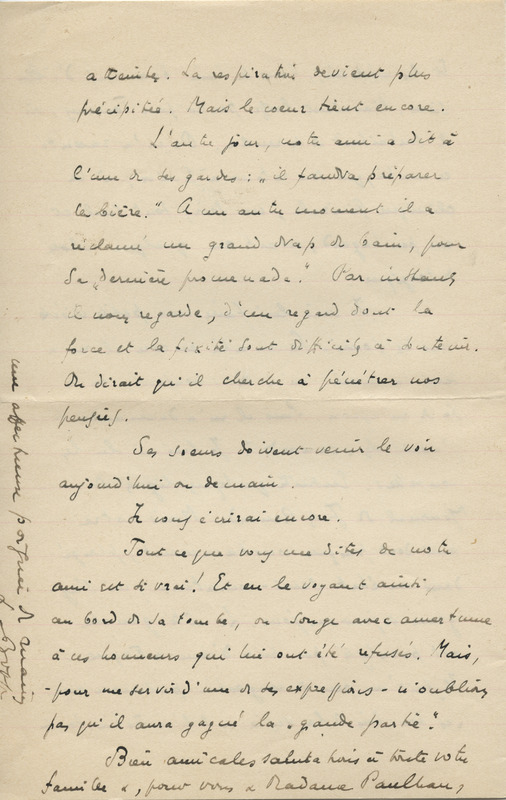 atteints. La respiration devient plus
précipitée. Mais le coeur tient encore.
L'autre jour, notre ami a dit à
l'une de ses gardes : „il faudra préparer
la bière." A un autre moment il a
réclamé un grand drap de bain, pour
sa „dernière promenade." Par instants
il nous regarde, d'un regard dont la
force et la fixité sont difficiles à soutenir.
On dirait qu'il cherche à pénétrer nos
pensées.
Ses soeurs doivent venir le voir
aujourd'hui ou demain.
Je vous écrirai encore.
Tout ce que vous me dites de notre
ami est si vrai! Et en le voyant ainsi,
au bord de sa tombe, on songe avec amertume
à ces honneurs qui lui ont été refusés. Mais,
- pour me servir d'une de ses expressions - n'oublions
pas qu'il aura gagné la „grande partie".
Bien amicales salutations à toute votre
famille &, pour vous & Madame Paulhan,
une affectueuse poignée de mains